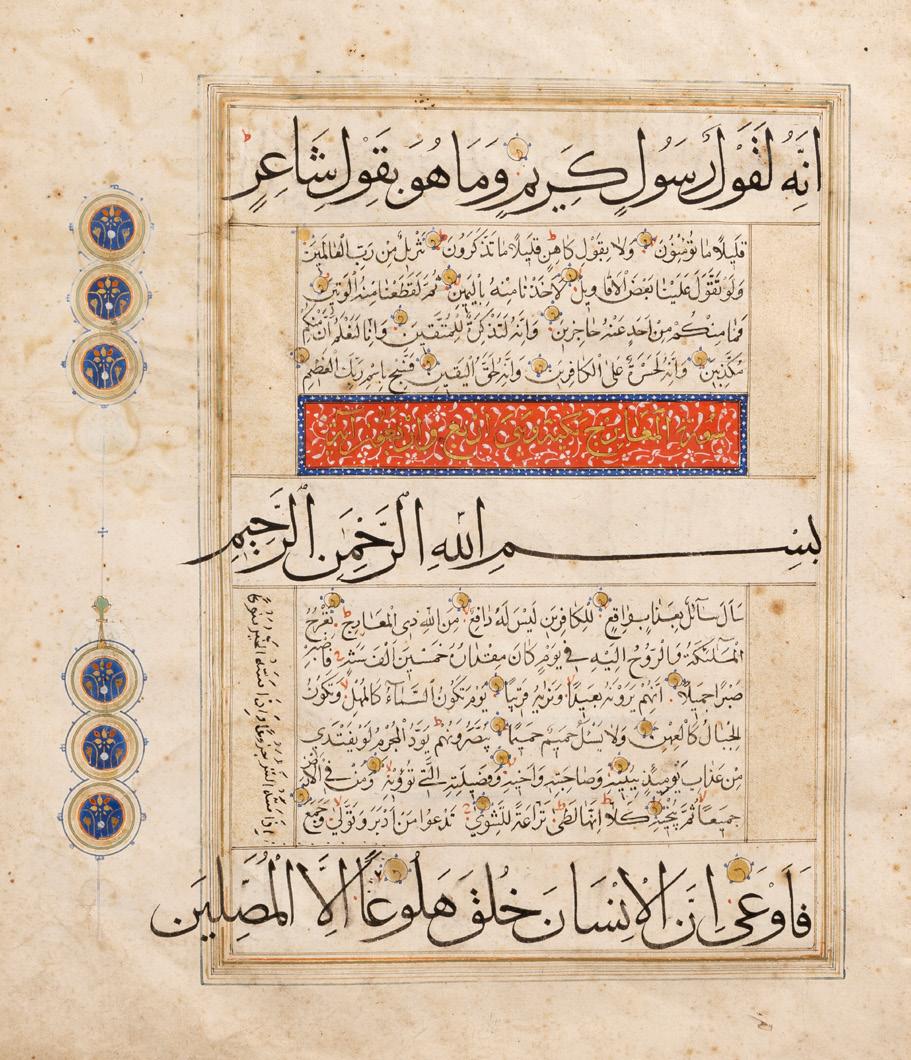 انَّهُ لَقَوْلُ رَسُولٍ كَرِيمٍ وَمَا هُوَ بِقَوْلِ شَاعِرٍ
قَلِيلًا مَا تُؤْمِنُونَ وَلَا بِقَوْلِ كَاهِنٍ قَلِيلًا مَا تَذَكَّرُونَ تَنْزِيلٌ مِنْ رَبِّ الْعَالَمِينَ
وَلَوْ تَقَوَّلَ عَلَيْنَا بَعْضَ الْاَقَاوِيلِ لَاَخَذْنَا مِنْهُ بِالْيَمِينِ ثُمَّ لَقَطَعْنَا مِنْهُ الْوَتِينَ
فَمَا مِنْكُمْ مِنْ اَحَدٍ عَنْهُ حَاجِزِينَ وَاِنَّهُ لَتَذْكِرَةٌ لِلْمُتَّقِينَ وَاِنَّا لَنَعْلَمُ اَنَّ مِنْكُمْ
مُكَذِّبِينَ وَاِنَّهُ لَحَسْرَةٌ عَلَى الْكَافِرِينَ وَاِنَّهُ لَحَقُّ الْيَقِينِ فَسَبِّحْ بِاسْمِ رَبِّكَ الْعَظِيمِ
سورة المعارج مكية وهي اربع واربعون آية
بِسْمِ اللَّهِ الرَّحْمَنِ الرَّحِيمِ
سَاَلَ سَائِلٌ بِعَذَابٍ وَاقِعٍ لِلْكَافِرِينَ لَيْسَ لَهُ دَافِعٌ مِنَ اللَّهِ ذِي الْمَعَارِجِ تَعْرُجُ
الْمَلَئِكَةُ وَالرُّوحُ اِلَيْهِ فِي يَوْمٍ كَانَ مِقْدَارُهُ خَمْسِينَ اَلْفَ سَنَةٍ فَاصْبِرْ
صَبْرًا جَمِيلًا اِنَّهُمْ يَرَوْنَهُ بَعِيدًا وَنَرَاهُ قَرِيبًا يَوْمَ تَكُونُ السَّمَاءُ كَالْمُهْلِ وَتَكُونُ
الْجِبَالُ كَالْعِهْنِ وَلَا يَسْئَلُ حَمِيمٌ حَمِيمًا يُبَصَّرُونَهُمْ يَوَدُّ الْمُجْرِمُ لَوْ يَفْتَدِي
مِنْ عَذَابِ يَوْمِئِذٍ بِبَنِيهِ وَصَاحِبَتِهِ وَاَخِيهِ وَفَصِيلَتِهِ الَّتِي تُؤْوِيهِ وَمَنْ فِي الْاَرْضِ
جَمِيعًا ثُمَّ يُنْجِيهِ كَلَّا اِنَّهَا لَظَى نَزَّاعَةً لِلشَّوَى تَدْعُوا مَنْ اَدْبَرَ وَتَوَلَّى وَجَمَعَ
فَاَوْعَى اِنَّ الْاِنْسَانَ خُلِقَ هَلُوعًا اِلَّا الْمُصَلِّينَ
اذا مسه الشر جزوعا واذا مسه الخير منوعا